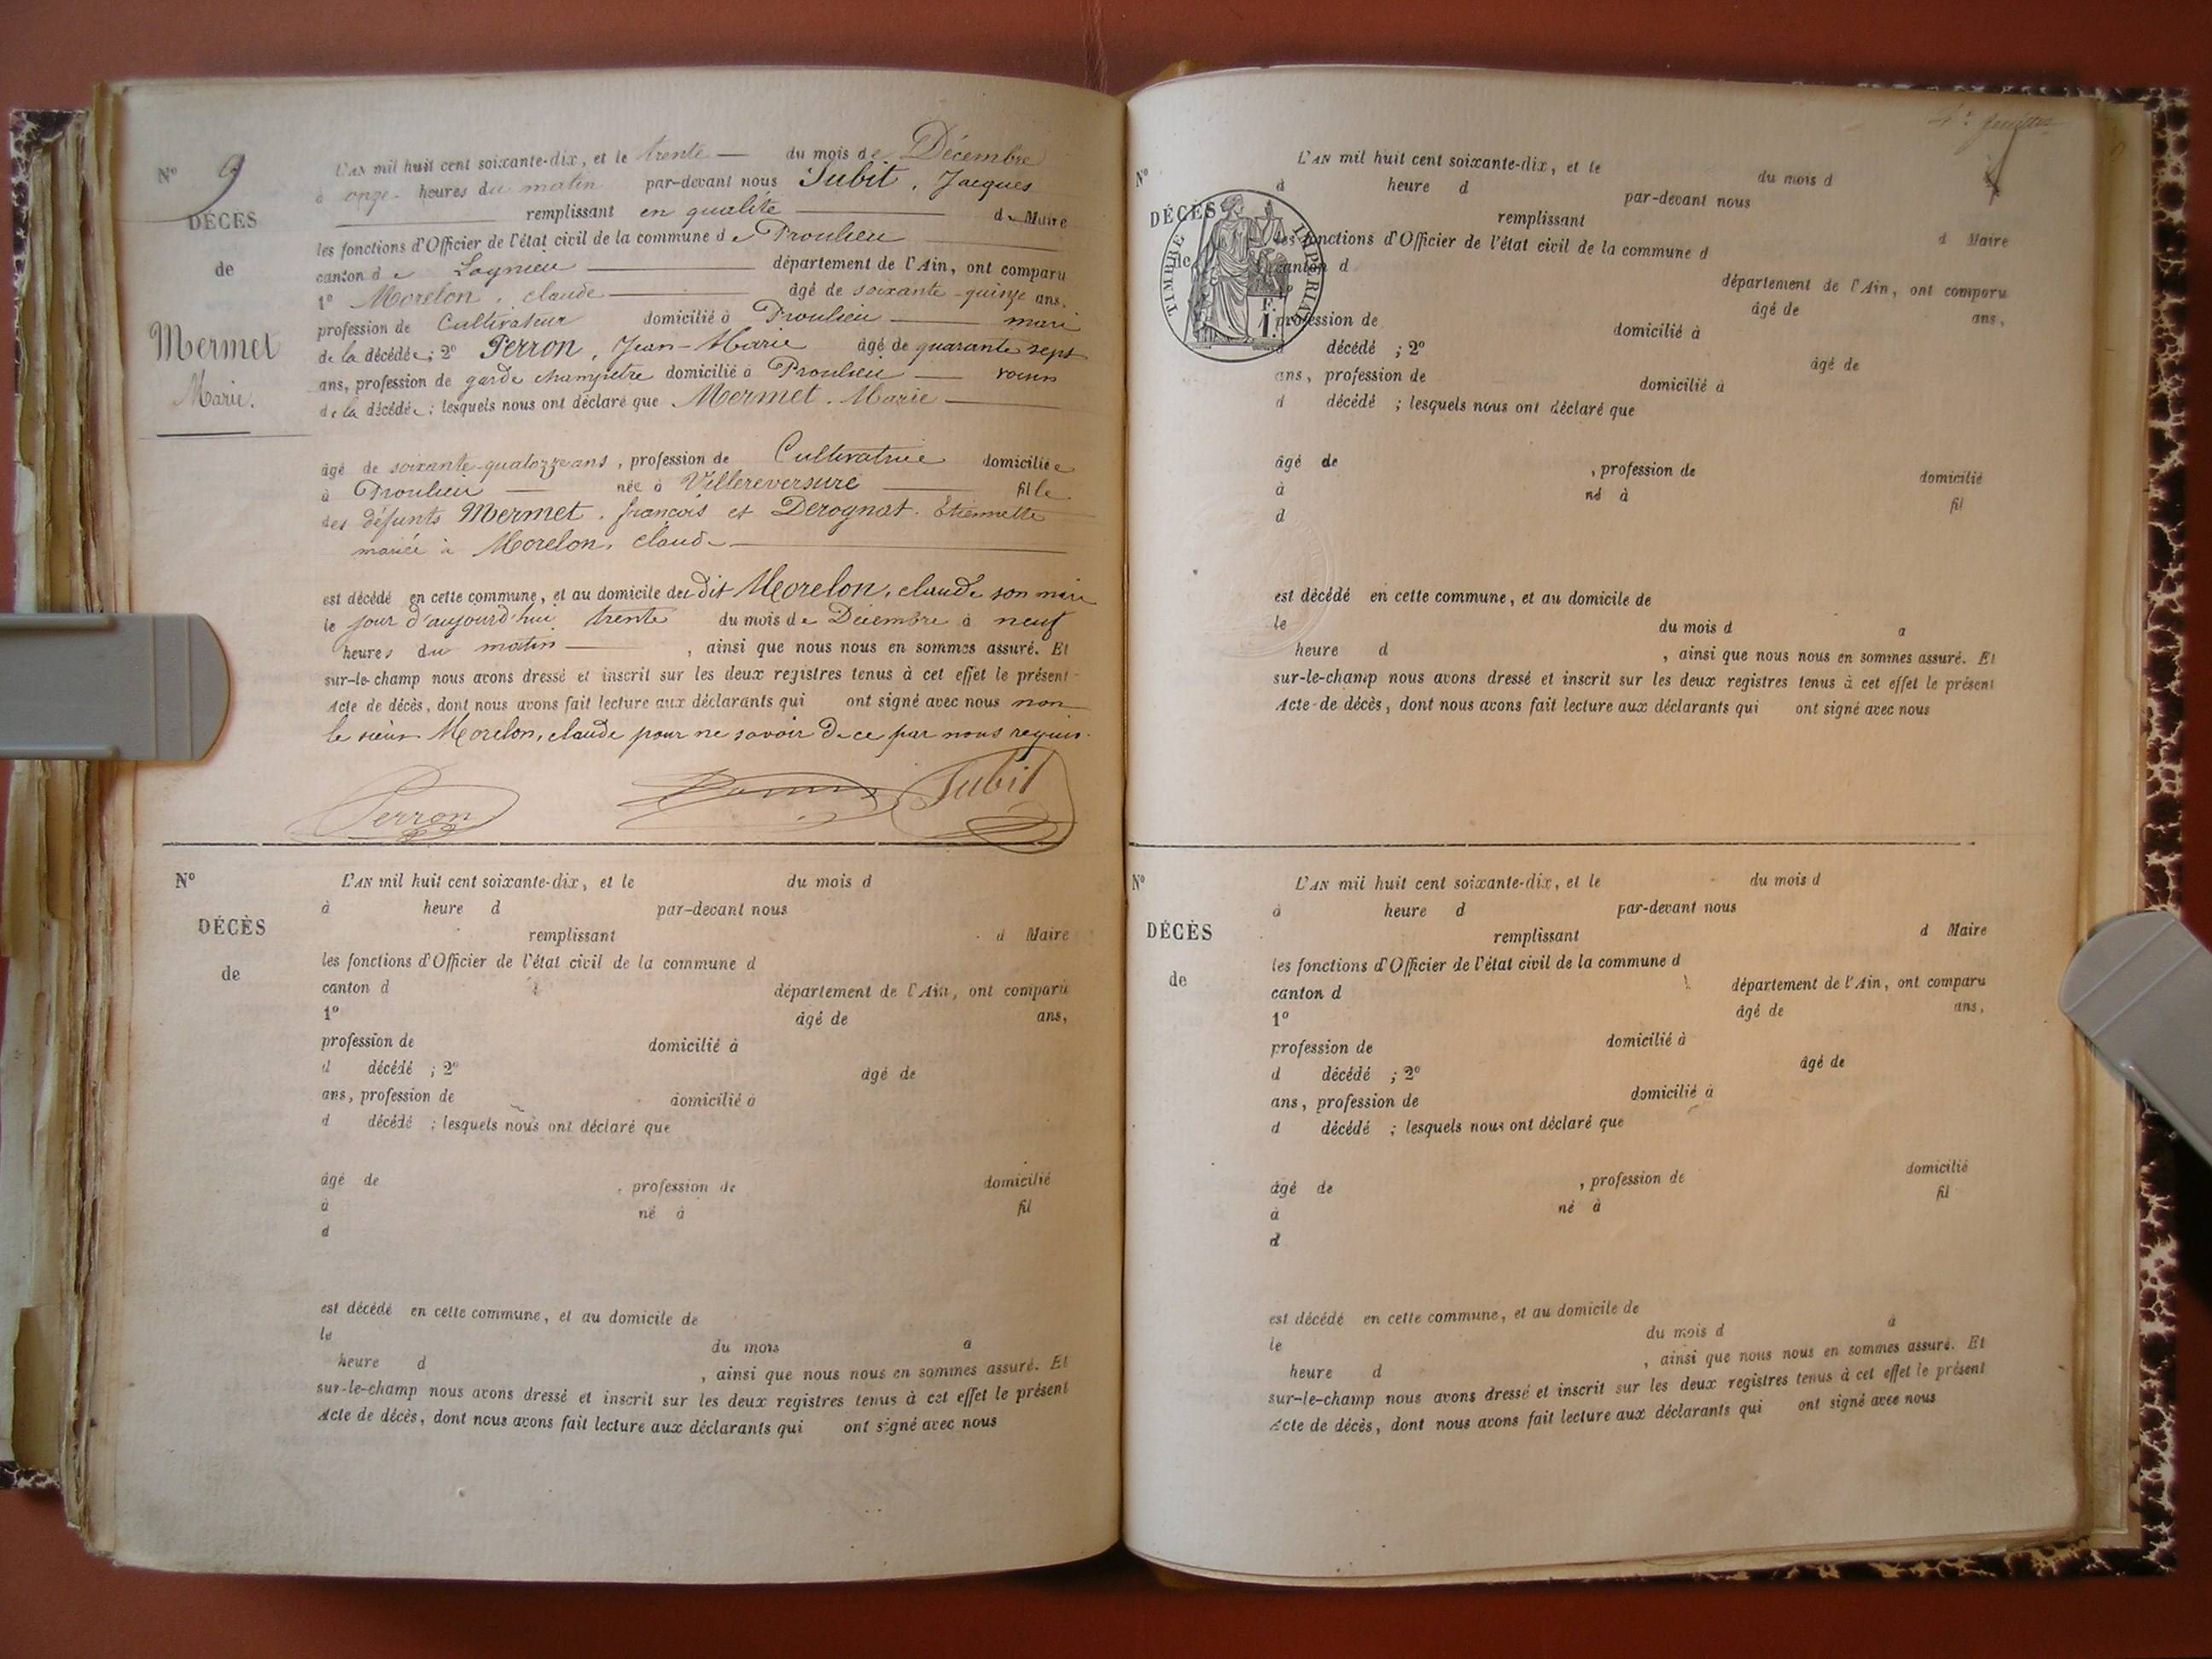 N° 9
DÉCÈS
de
Mermet
Marie.
L'AN mil huit cent soixante-dix, et le trente du mois de Décembre
à onze heures du matin par-devant nous Jubit, Jacques
remplissant en qualité de Maire
les fonctions d'Officier de l'état civil de la commune de Proulieu
canton de Lagnieu département de l'Ain, ont comparu
1° Morelon, claude âgé de soixante-quinze ans,
profession de Cultivateur domicilié à Proulieu mari
de la décédée; 2° Perron, Jean-Marie âgé de quarante sept
ans, profession de garde champêtre domicilié à Proulieu voisin
de la décédée; lesquels nous ont déclaré que Mermet, Marie
âgé de soixante-quatorze ans, profession de Cultivatrice domiciliée
à Proulieu née à Villereversure fille
des défunts Mermet, françois et Derognat, Etiennette
mariée à Morelon, claude
est décédé en cette commune, et au domicile du dit Morelon, claude son mari
le jour d'aujourd'hui trente du mois de Décembre à neuf
heures du matin, ainsi que nous nous en sommes assuré. Et
sur-le-champ nous avons dressé et inscrit sur les deux registres tenus à cet effet le présent
Acte de décès, dont nous avons fait lecture aux déclarants qui ont signé avec nous non
le sieur Morelon, claude pour ne savoir de ce par nous requis.
Perron Jubit
N°
DÉCÈS
de
L'AN mil huit cent soixante-dix, et le du mois d
à heure d par-devant nous
remplissant d Maire
les fonctions d'Officier de l'état civil de la commune d
canton d département de l'Ain, ont comparu
1° âgé de ans,
profession de domicilié à
d décédé ; 2° âgé de
ans, profession de domicilié à
d décédé ; lesquels nous ont déclaré que
âgé de , profession de domicilié
à né à fil
d
est décédé en cette commune, et au domicile de
le du mois à
heure d , ainsi que nous nous en sommes assuré. Et
sur-le-champ nous avons dressé et inscrit sur les deux registres tenus à cet effet le présent
Acte de décès, dont nous avons fait lecture aux déclarants qui ont signé avec nous
N°
DÉCÈS
de
TIMBRE IMPÉRIAL
1 F.
L'AN mil huit cent soixante-dix, et le du mois d
à heure d par-devant nous
remplissant d Maire
les fonctions d'Officier de l'état civil de la commune d
canton d département de l'Ain, ont comparu
1° âgé de ans,
profession de domicilié à
d décédé ; 2° âgé de
ans, profession de domicilié à
d décédé ; lesquels nous ont déclaré que
âgé de , profession de domicilié
à né à fil
d
est décédé en cette commune, et au domicile de
le du mois d à
heure d , ainsi que nous nous en sommes assuré. Et
sur-le-champ nous avons dressé et inscrit sur les deux registres tenus à cet effet le présent
Acte de décès, dont nous avons fait lecture aux déclarants qui ont signé avec nous
N°
DÉCÈS
de
L'AN mil huit cent soixante-dix, et le du mois d
à heure d par-devant nous
remplissant d Maire
les fonctions d'Officier de l'état civil de la commune d
canton d département de l'Ain, ont comparu
1° âgé de ans,
profession de domicilié à
d décédé ; 2° âgé de
ans, profession de domicilié à
d décédé ; lesquels nous ont déclaré que
âgé de , profession de domicilié
à né à fil
d
est décédé en cette commune, et au domicile de
le du mois d à
heure d , ainsi que nous nous en sommes assuré. Et
sur-le-champ nous avons dressé et inscrit sur les deux registres tenus à cet effet le présent
Acte de décès, dont nous avons fait lecture aux déclarants qui ont signé avec nous